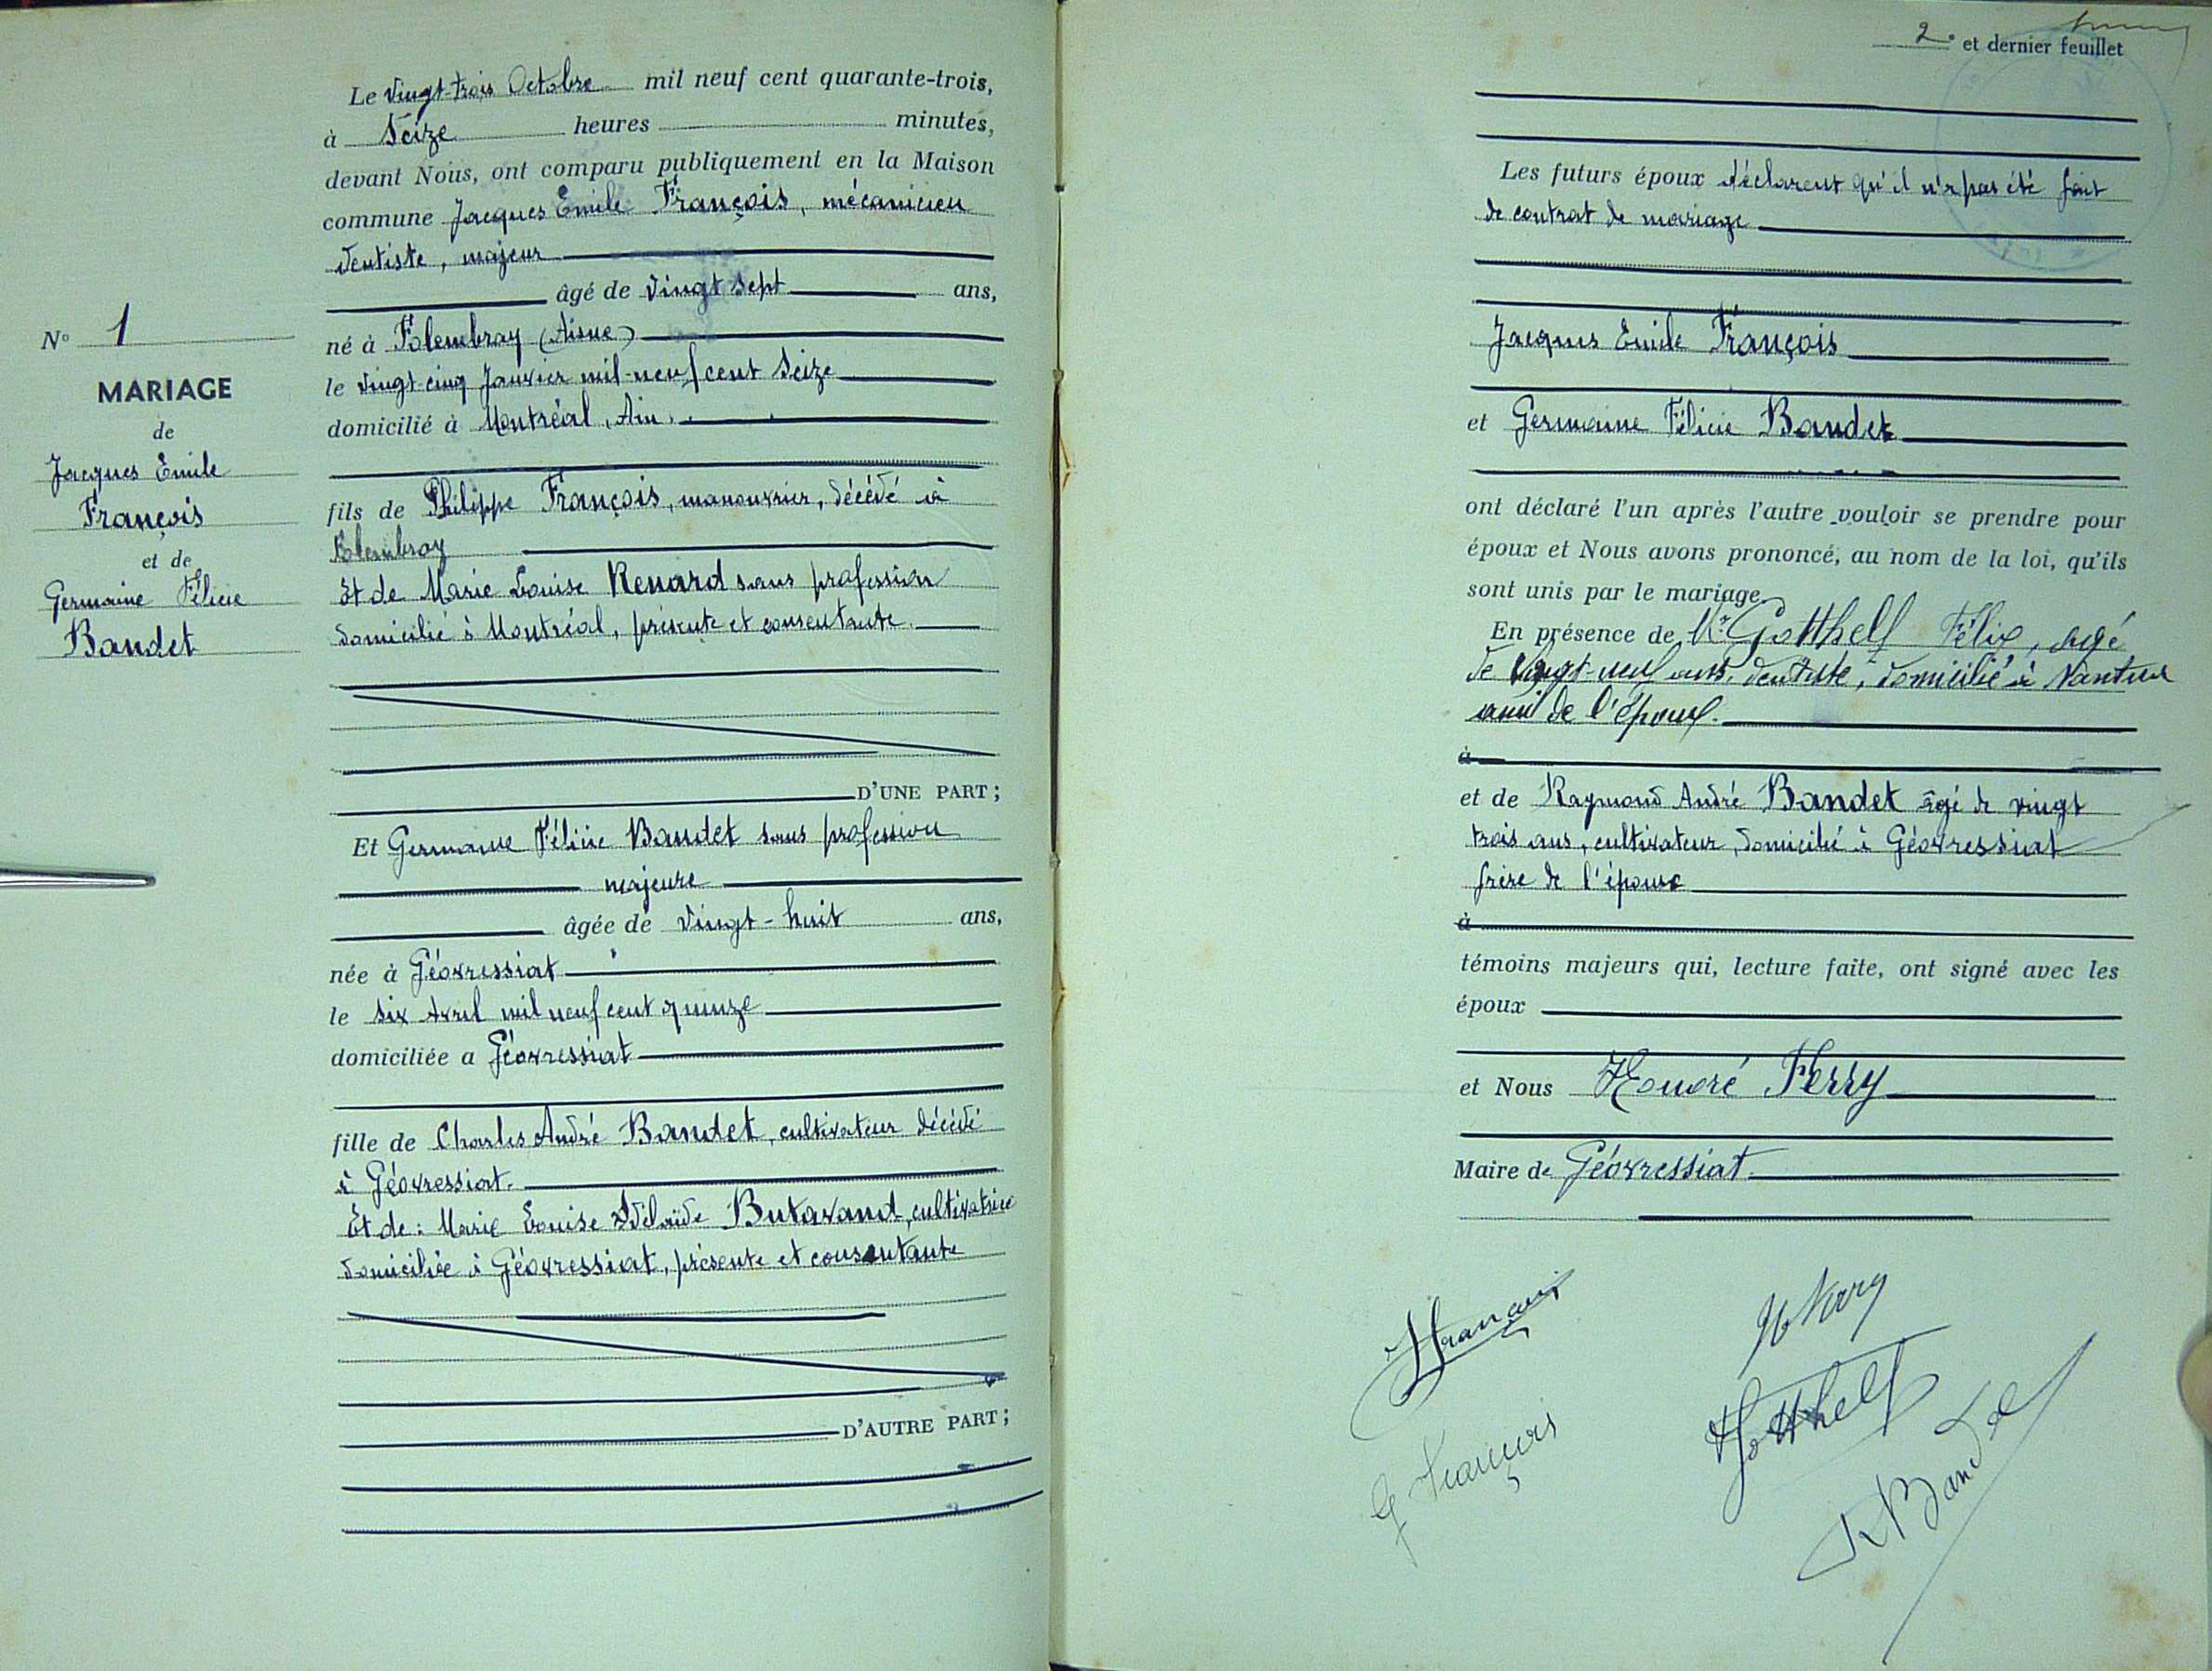 N° 1
MARIAGE
de
Jacques Emile
François
et de
Germaine Félicie
Bandet
Le vingt-trois Octobre mil neuf cent quarante-trois,
à Seize heures minutes,
devant Nous, ont comparu publiquement en la Maison
commune Jacques Emile François, mécanicien
dentiste, majeur
âgé de vingt sept ans,
né à Folembray (Aisne)
le vingt-cinq Janvier mil-neuf cent Seize
domicilié à Montréal, Ain.
fils de Philippe François, manouvrier, décédé à
Folembray
Et de Marie Louise Renard sans profession
domicilié à Montréal, présente et consentante.
D'UNE PART ;
Et Germaine Félicie Bandet sans profession
majeure
âgée de vingt-huit ans,
née à Géovressiat
le six Avril mil neuf cent quinze
domiciliée a Géovressiat
fille de Charles André Bandet, cultivateur décédé
à Géovressiat.
Et de : Marie Louise Adélaïde Butavand, cultivatrice
domiciliée à Géovressiat, présente et consentante
D'AUTRE PART ;
2e et dernier feuillet
Les futurs époux déclarent qu'il n'a pas été fait
de contrat de mariage
Jacques Emile François
et Germaine Félicie Bandet
ont déclaré l'un après l'autre vouloir se prendre pour
époux et Nous avons prononcé, au nom de la loi, qu'ils
sont unis par le mariage.
En présence de Mr Gotthelf Félix, agé
de vingt-neuf ans, dentiste, domicilié à Nantua
ami de l'époux.
à
et de Raymond André Bandet âgé de vingt
trois ans, cultivateur, domicilié à Géovressiat
frère de l'épouse
à
témoins majeurs qui, lecture faite, ont signé avec les
époux
et Nous Honoré Ferry
Maire de Géovressiat
François
H Ferry
Gotthelf
G François
R Bandet